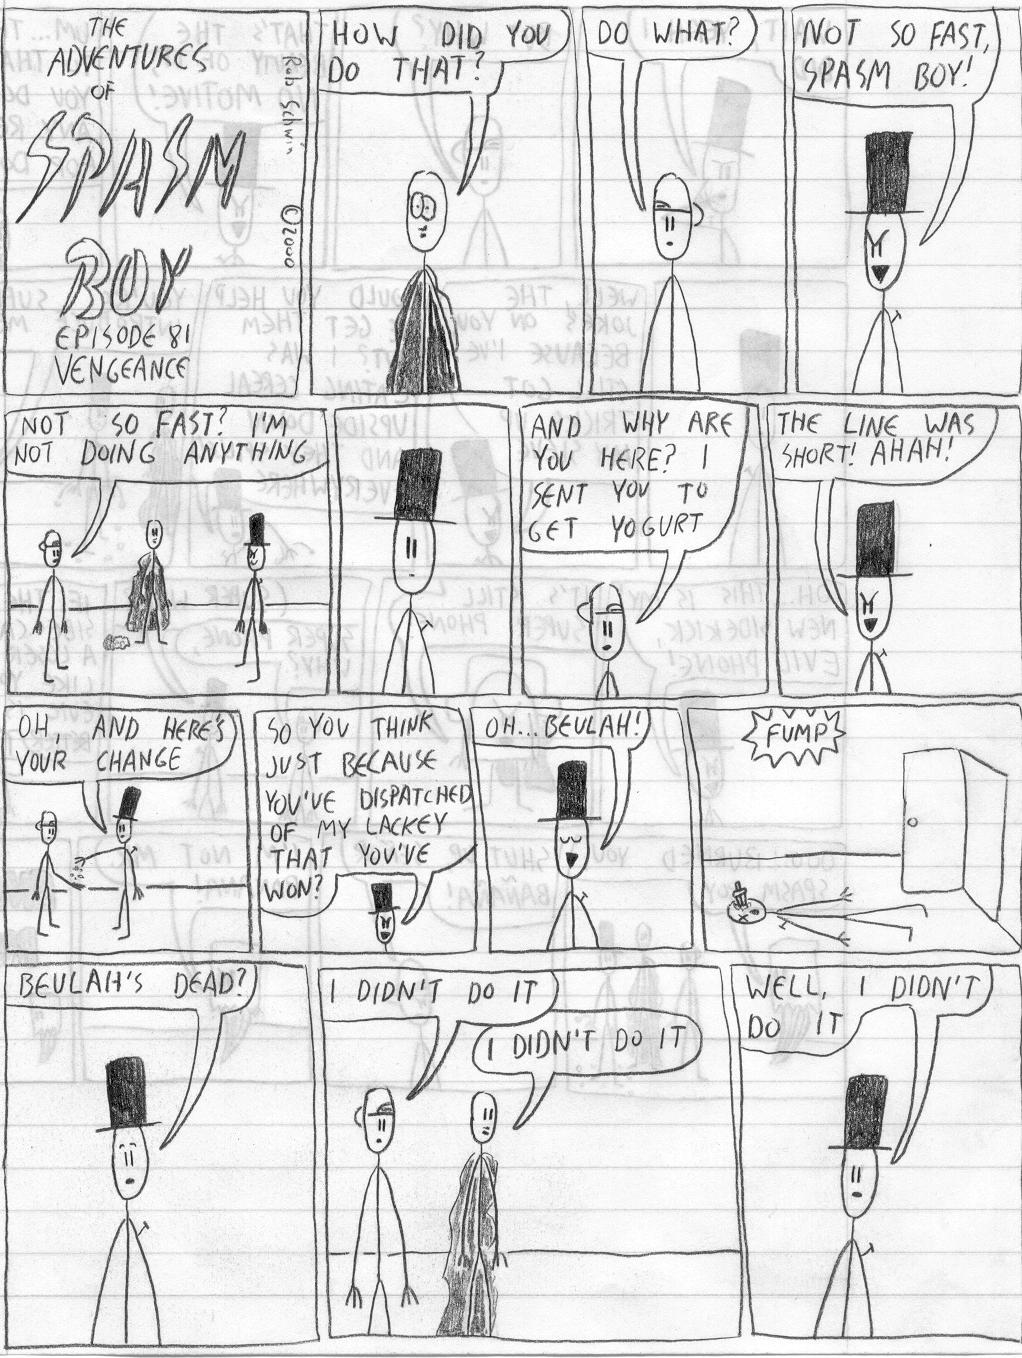 THE
ADVENTURES
OF
SPASM
BOY
EPISODE 81
VENGEANCE
Rob Schwin ©2000
HOW DID YOU
DO THAT?
DO WHAT?
NOT SO FAST,
SPASM BOY!
NOT SO FAST? I'M
NOT DOING ANYTHING
AND WHY ARE
YOU HERE? I
SENT YOU TO
GET YOGURT
THE LINE WAS
SHORT! AHAH!
OH, AND HERE'S
YOUR CHANGE
SO YOU THINK
JUST BECAUSE
YOU'VE DISPATCHED
OF MY LACKEY
THAT YOU'VE
WON?
OH...BEULAH!
FUMP
BEULAH'S DEAD?
I DIDN'T DO IT
I DIDN'T DO IT
WELL, I DIDN'T
DO IT